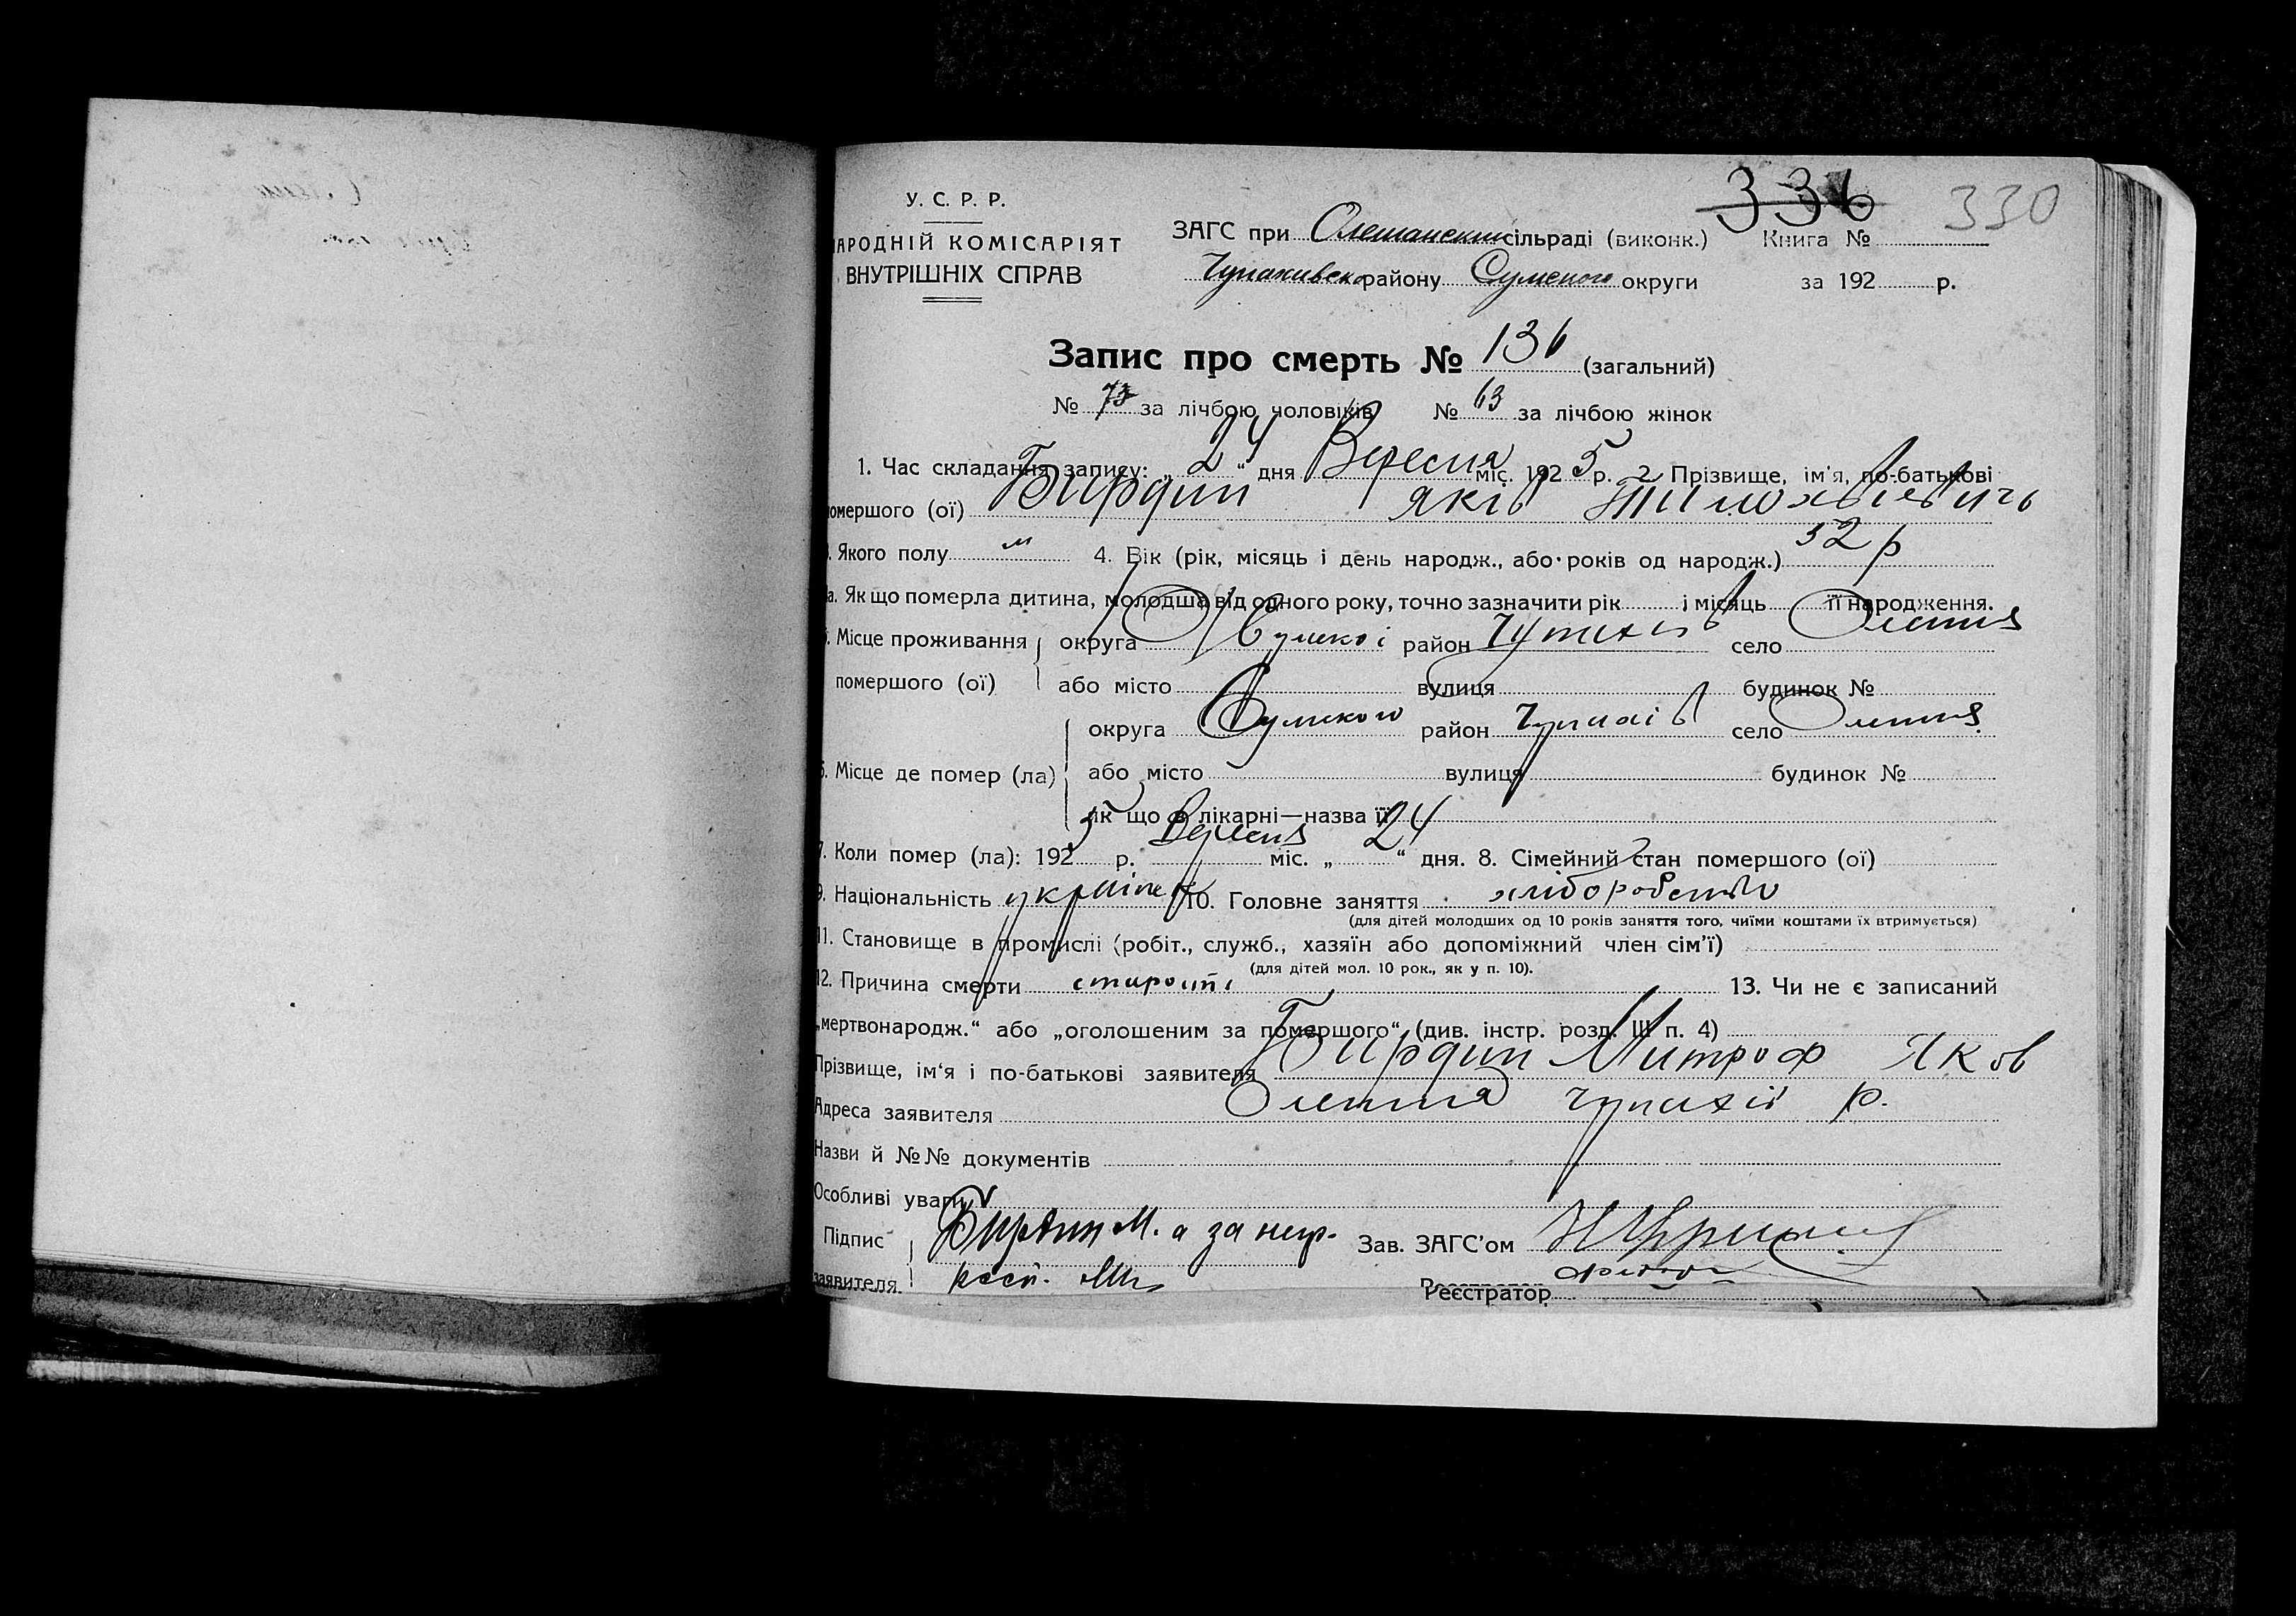 336 330
У. С. Р. Р.
НАРОДНІЙ КОМІСАРІЯТ
ВНУТРІШНІХ СПРАВ
ЗАГС при сільраді (виконк.) Книга №
району Сумского округи за 192 р.
Запис про смерть № 136 (загальний)
№ 73 за лічбою чоловіків № 63 за лічбою жінок
1. Час складання запису: „ 24 “ дня Вересня міс. 1925 р. 2. Прізвище, ім'я, по-батькові
помершого (ої) Бирдин Яків Тимохвіевичь
3. Якого полу м 4. Вік (рік, місяць і день народж., або років од народж.) р
а. Як що померла дитина, молодша від одного року, точно зазначити рік і місяць її народження.
5. Місце проживання округа район Чупахів село Олешня
помершого (ої) або місто вулиця будинок №
округа Сумского район село Олешня
6. Місце де помер (ла) або місто вулиця будинок №
як що в лікарні—назва її
7. Коли помер (ла): 1925 р. Вересня міс. „ 24 “ дня. 8. Сімейний стан помершого (ої)
9. Національність україн 10. Головне заняття хліборобство
(для дітей молодших од 10 років заняття того, чиїми коштами їх втримується)
11. Становище в промислі (робіт., служб., хазяїн або допоміжний член сім'ї)
(для дітей мол. 10 рок., як у п. 10).
12. Причина смерти старости 13. Чи не є записаний
„мертвонародж.“ або „оголошеним за помершого“ (див. інстр. розд. III п. 4)
Прізвище, ім'я і по-батькові заявителя Бирдин Митроф Яков
Адреса заявителя Олешня Чупахів р.
Назви й №№ документів
Особливі уваги
Підпис Бирдин М. а за негр. Зав. ЗАГС'ом
заявителя Реєстратор